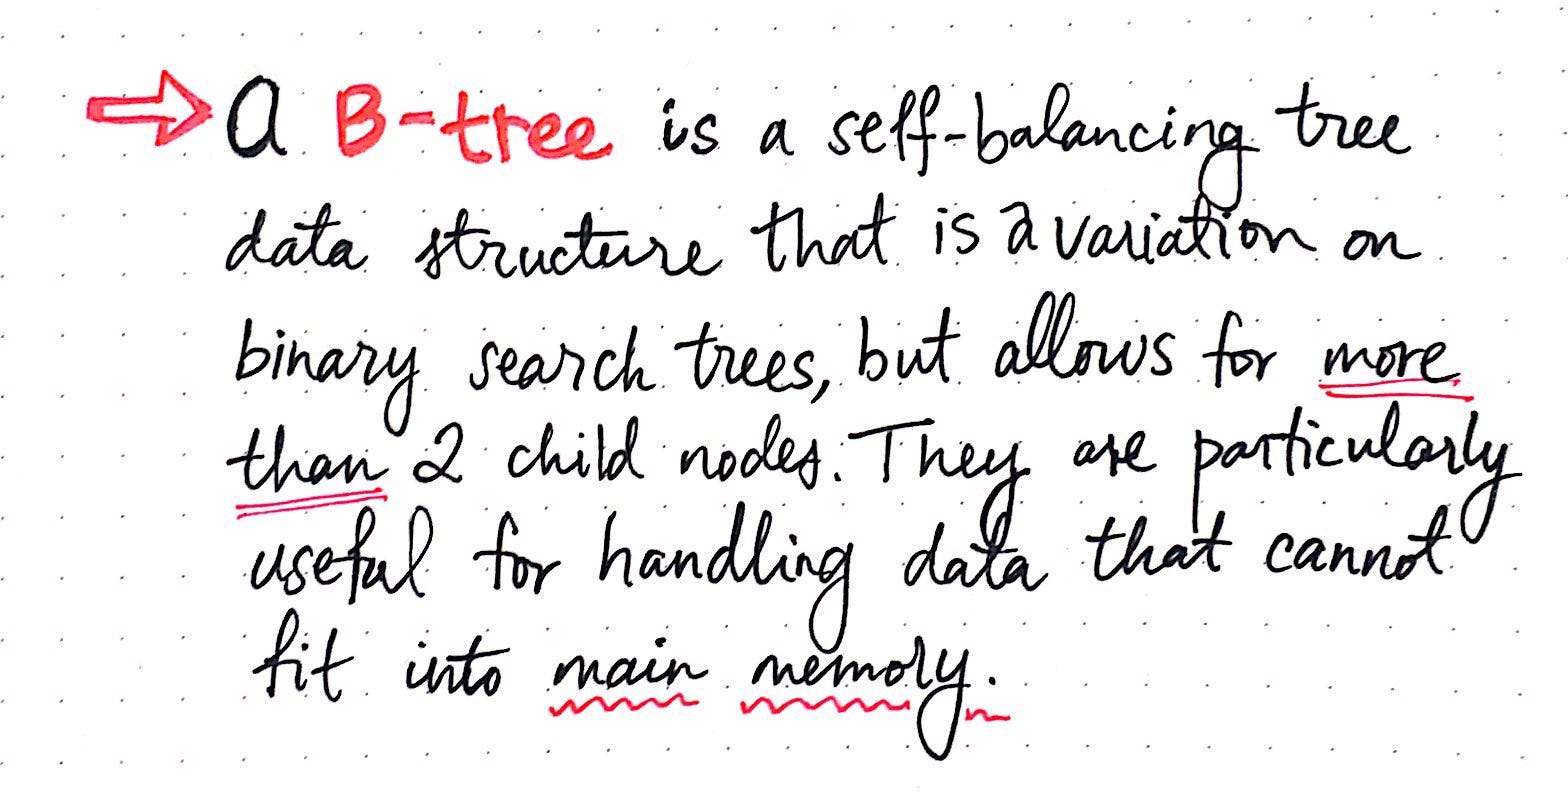 a B-tree is a self-balancing tree
data structure that is a variation on
binary search trees, but allows for more
than 2 child nodes. They are particularly
useful for handling data that cannot
fit into main memory.